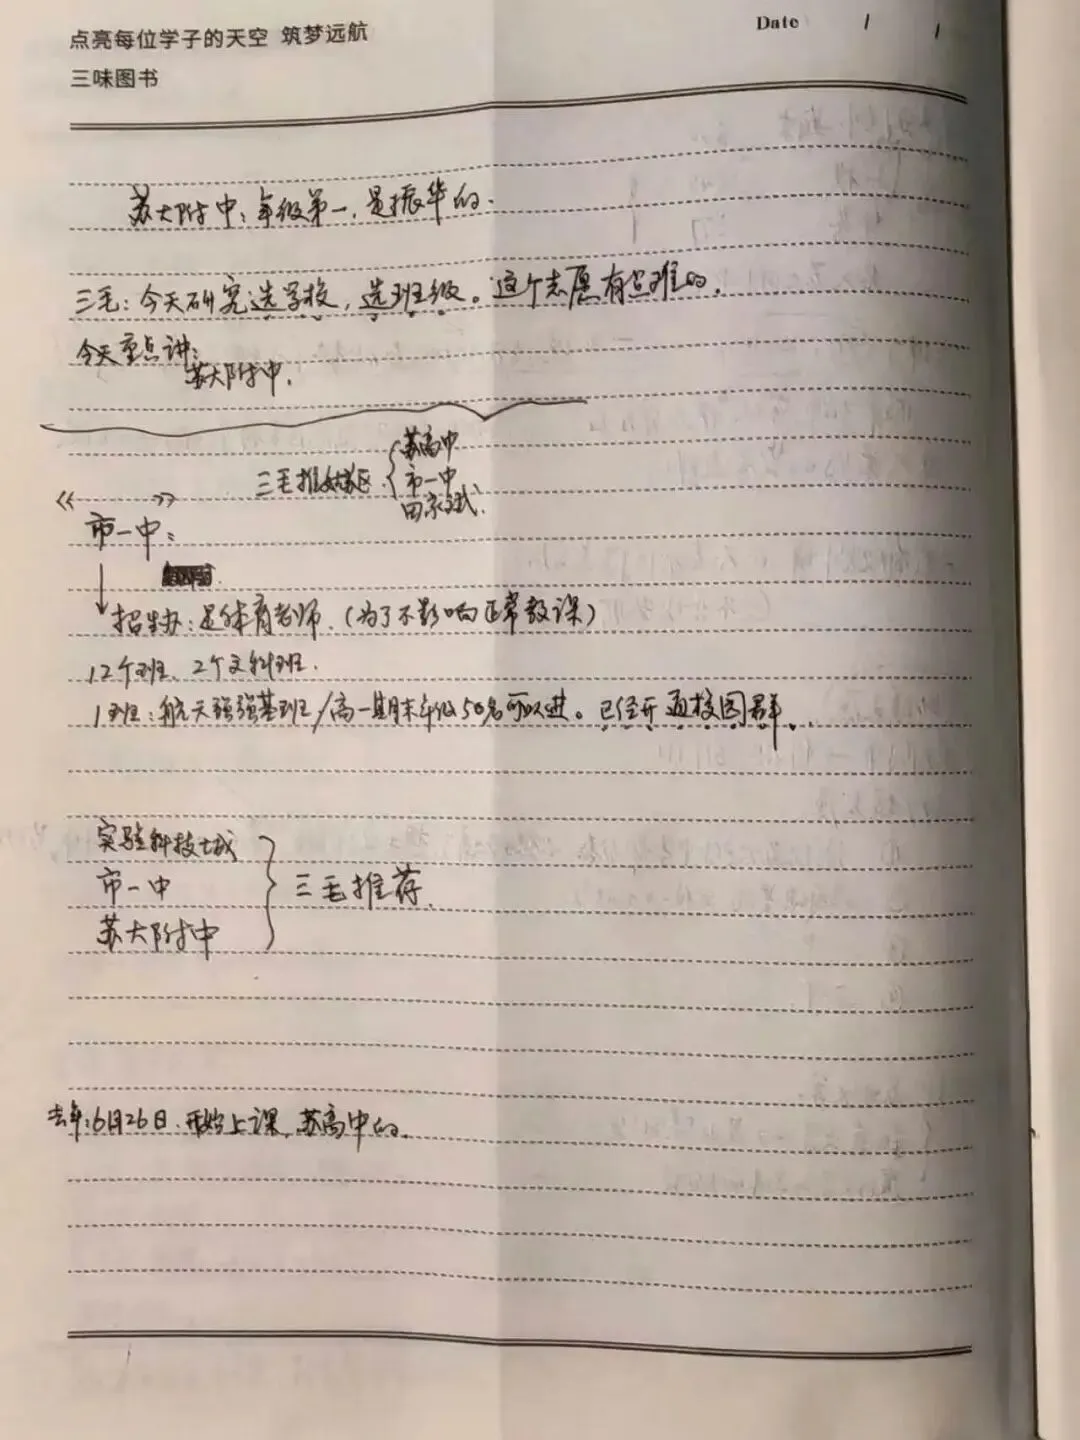 点亮每位学子的天空 筑梦远航
Date / /
三味图书
苏大附中：年级第一，是振华的.
三毛：今天研究选学校，选班级。这个志愿有点难的.
今天重点讲：
苏大附中.
三毛推姑苏区 { 苏高中
市一中
田家炳.
《 》
市一中：
招生办：是体育老师.（为了不影响正常教课）
12个班、2个文科班.
1班：航天强基班/高一期末年级50名可以进。已经开 通校园群.
实验科技城
市一中
苏大附中
} 三毛推荐.
去年：6月26日.开始上课，苏高中的.